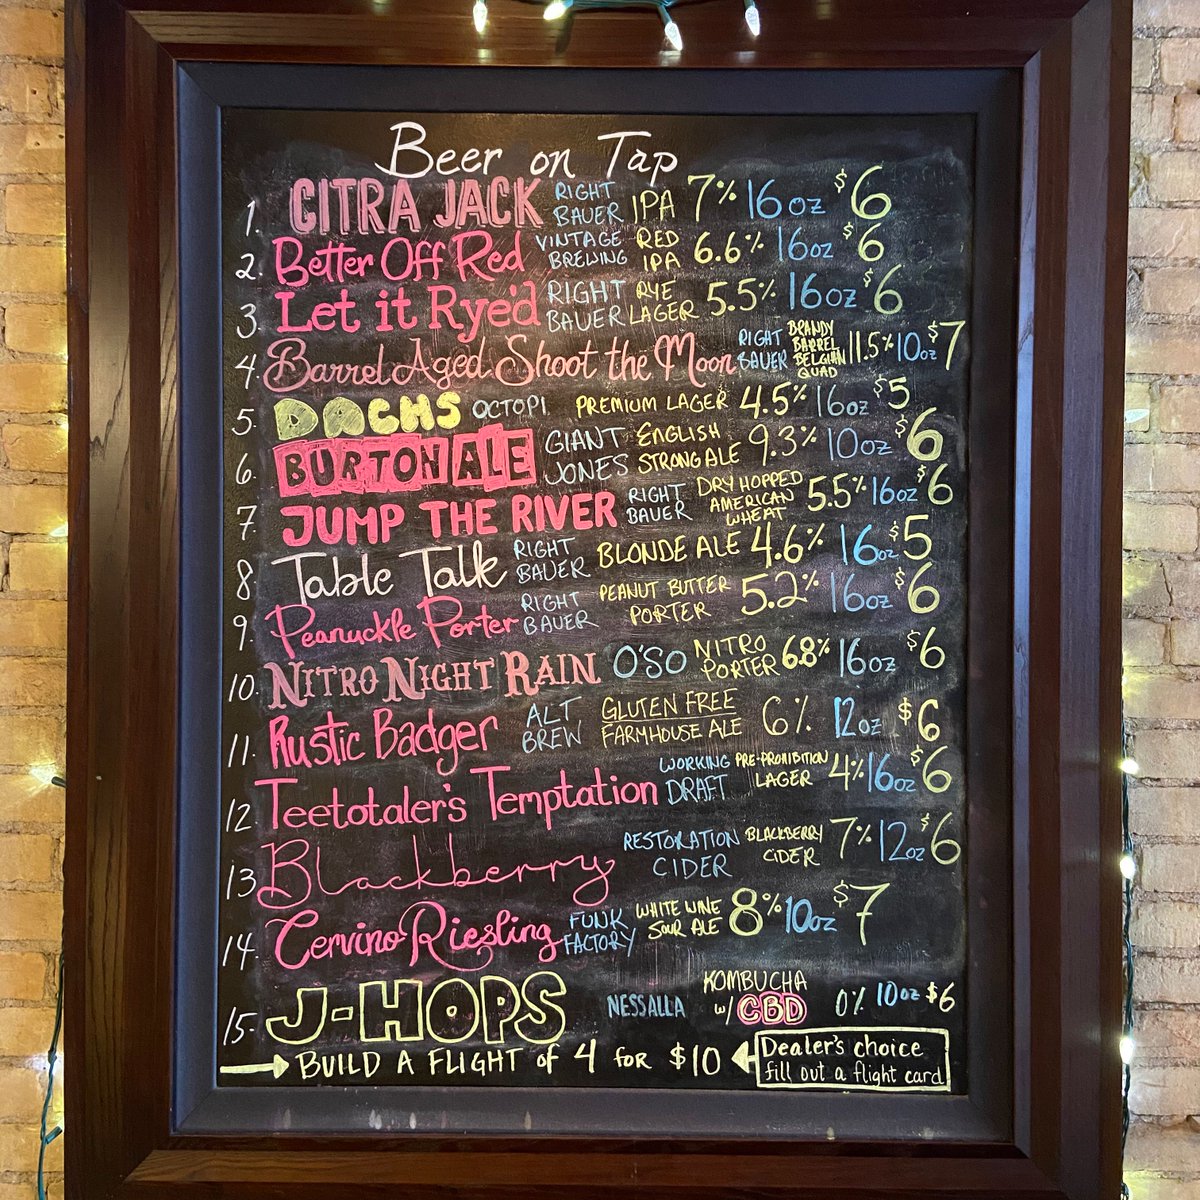 Beer on Tap
1. CITRA JACK RIGHT BAUER IPA 7% 16oz $6
2. Better Off Red VINTAGE BREWING RED IPA 6.6% 16oz $6
3. Let it Rye'd RIGHT BAUER RYE LAGER 5.5% 16oz $6
4. Barrel Aged Shoot the Moon RIGHT BAUER BRANDY BARREL BELGIAN QUAD 11.5% 10oz $7
5. DACHS OCTOPI PREMIUM LAGER 4.5% 16oz $5
6. BURTON ALE GIANT JONES ENGLISH STRONG ALE 9.3% 10oz $6
7. JUMP THE RIVER RIGHT BAUER DRY HOPPED AMERICAN WHEAT 5.5% 16oz $6
8. Table Talk RIGHT BAUER BLONDE ALE 4.6% 16oz $5
9. Peanuckle Porter RIGHT BAUER PEANUT BUTTER PORTER 5.2% 16oz $6
10. NITRO NIGHT RAIN O'SO NITRO PORTER 6.8% 16oz $6
11. Rustic Badger ALT BREW GLUTEN FREE FARMHOUSE ALE 6% 12oz $6
12. Teetotaler's Temptation WORKING DRAFT PRE-PROHIBITION LAGER 4% 16oz $6
13. Blackberry RESTORATION CIDER BLACKBERRY CIDER 7% 12oz $6
14. Cervino Riesling FUNK FACTORY WHITE WINE SOUR ALE 8% 10oz $7
15. J-HOPS NESSALLA KOMBUCHA w/ CBD 0% 10oz $6
→ BUILD A FLIGHT of 4 for $10 ← Dealer's choice
fill out a flight card